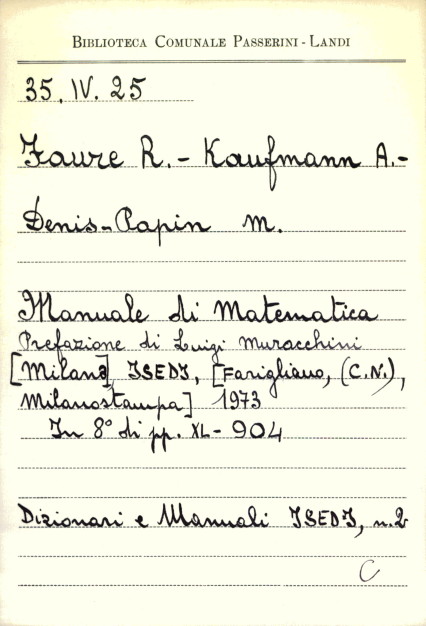 BIBLIOTECA COMUNALE PASSERINI - LANDI
35. IV. 25
Faure R. - Kaufmann A. -
Denis-Papin M.
Manuale di Matematica
Prefazione di Luigi Muracchini
[Milano], ISEDI, [Farigliano, (C.N.),
Milanostampa] 1973
In 8° di pp. XL - 904
Dizionari e Manuali ISEDI, n. 2
C